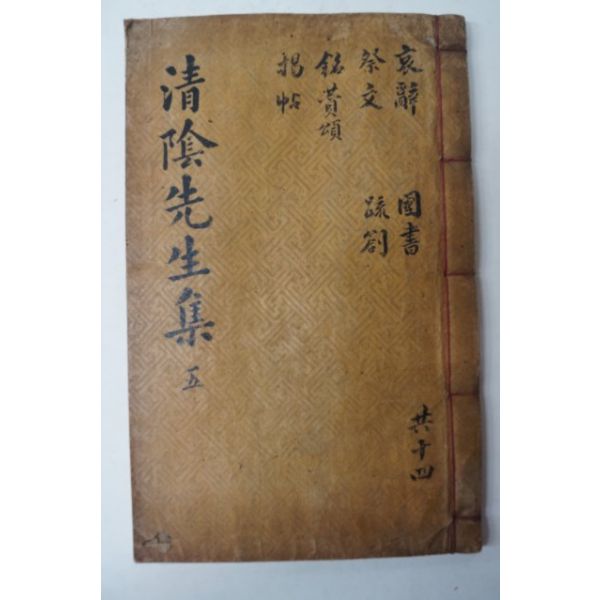 哀辭 國書
祭文 疏劄
銘賛頌
揭帖
共十四
清陰先生集 五